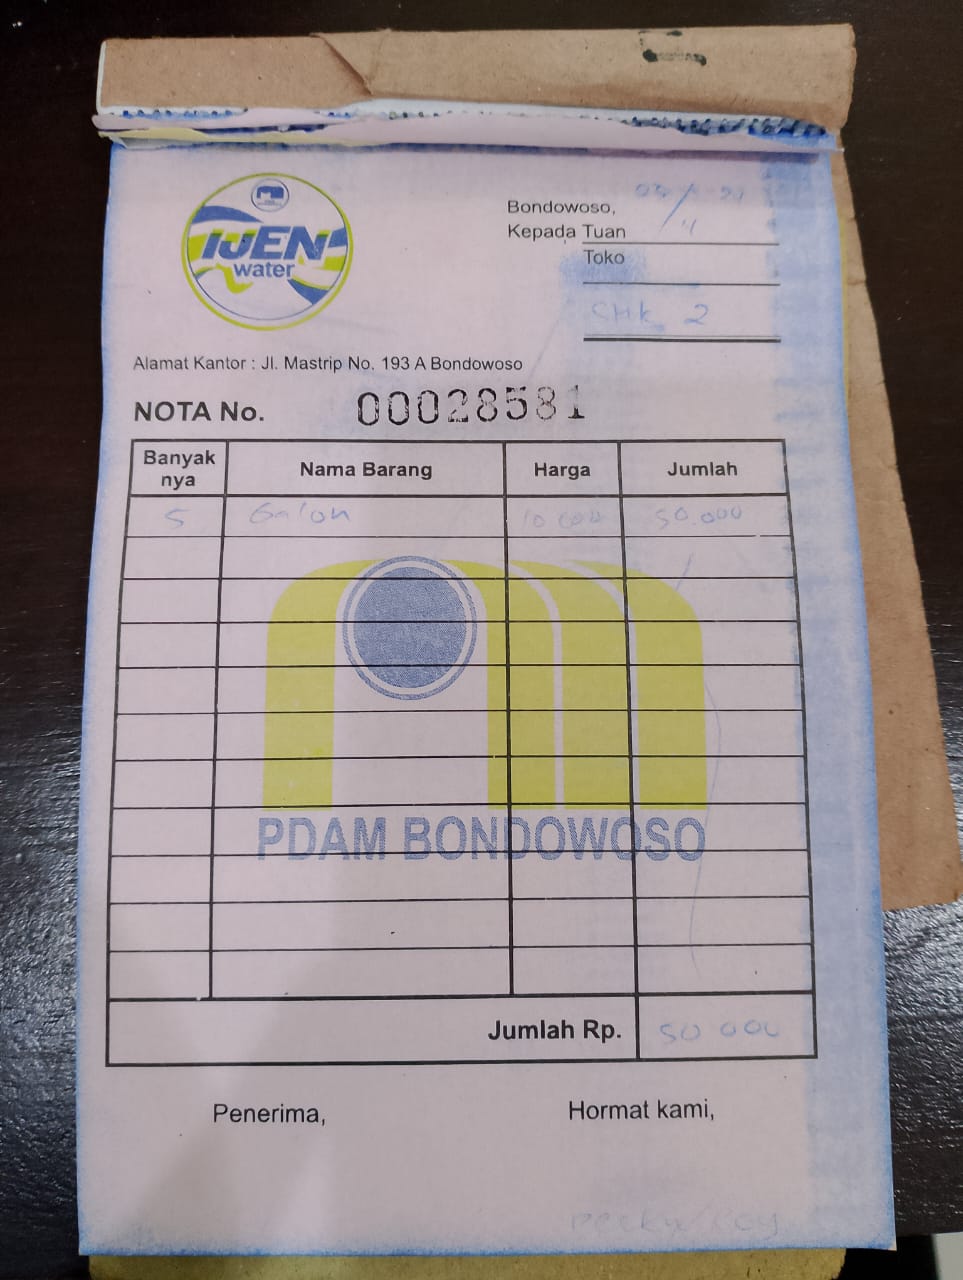 IJEN
water
Bondowoso,
Kepada Tuan
Toko
CHK 2
Alamat Kantor : Jl. Mastrip No. 193 A Bondowoso
NOTA No. 00028581
Banyak nya Nama Barang Harga Jumlah
5 Galon 10 000 50.000
PDAM BONDOWOSO
Jumlah Rp. 50 000
Penerima, Hormat kami,